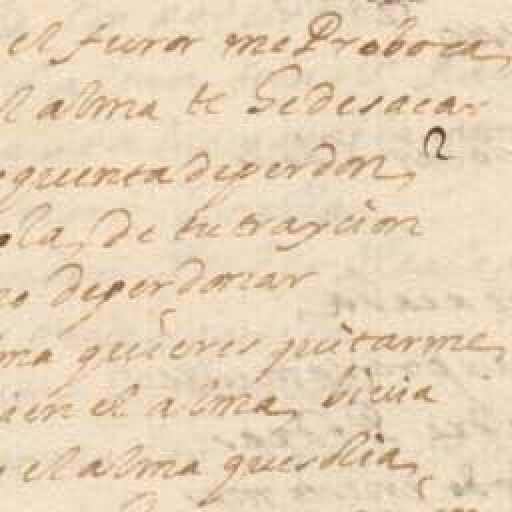 el furor me Proboca,
l alma te Hedesacar
quenta deperdon,
la, de tu traycion
no deperdonar
ma quieres quitarme,
en el alma, biuia
el alma quesolia,